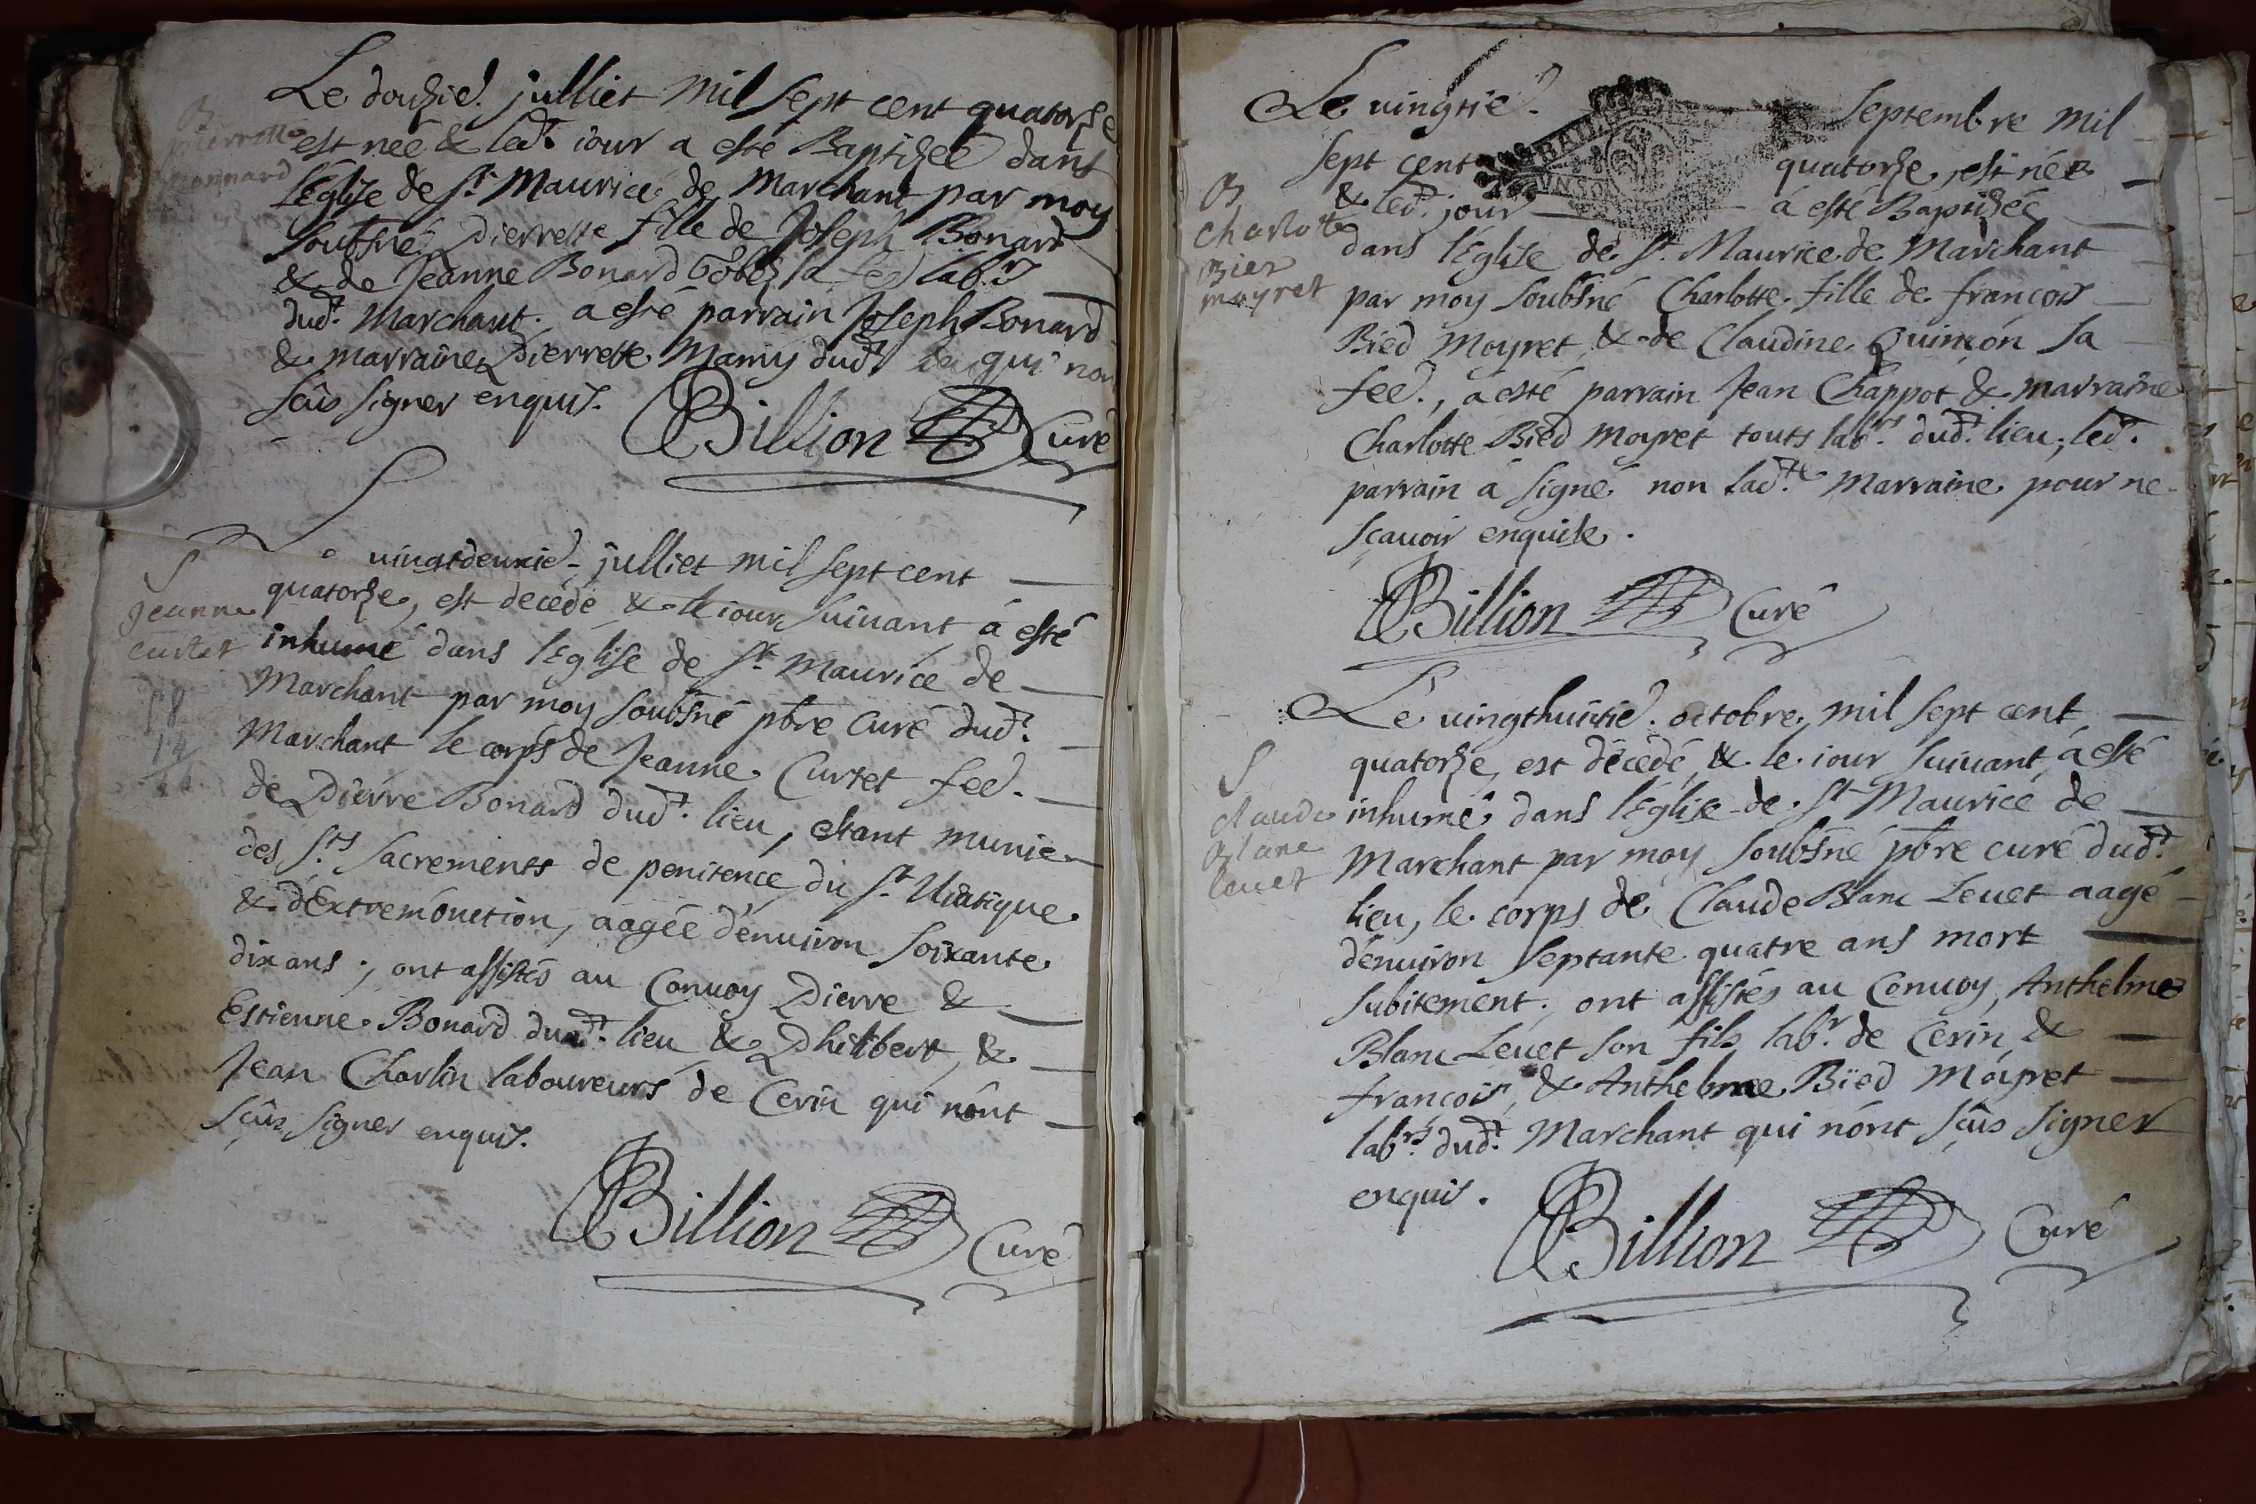 Le douzie. julliet mil sept cent quatorze
B
pierrette
bonnard
est neé & led.t iour a esté Baptizeé dans
l'Eglise de s.t Maurice de Marchant par moy
soubsné, Pierrette fille de Joseph Bonard
& de Jeanne Bonard sa fee lab.rs
dud.t Marchant. a esté parrain Joseph Bonard
& marraine Pierrette Mamy dud.t lieu qui non
sçûs signer enquis.
Billion Curé
S
Jeanne
curtet
Le vingtdeuxie. julliet mil sept cent
quatorze, est decédé & le iour suivant á esté
inhumé dans l'Eglise de s.t Maurice de
Marchant par moy soubsné pbre Curé dud.t
Marchant le corps de Jeanne Curtet fee.
de Pierre Bonard dud.t lieu, estant munie
des s.ts Sacrements de penitence, du s.t Viatique
& d'Extremónction, aagée d'enuiron soixante
dix ans ; ont assistés au Conuoy Pierre &
Estienne Bonard dud.t lieu & Philibert, &
Jean Charlin laboureurs de Cerin qui nónt
sçûs signer enquis.
Billion Curé
Le vingtie. septembre mil
sept cent quatorze, est neé
& led.t jour á esté Baptizéé
B
Charlotte
Bier
moyret
dans l'Eglise de s.t Maurice de Marchant
par moy soubsné Charlotte fille de françois
Bied Moyret, & de Claudine Quinson sa
fee., a esté parrain Jean Chappot & marraine
Charlotte Bied moyret touts lab.rs dud.t lieu, led.t
parrain á signé non lad.te Marraine pour ne
sçauoir enquise.
Billion Curé
Le vingthuictie. octobre, mil sept cent
quatorze, est décédé, & le iour suiuant á esté
S
claude
Blanc
leuet
inhumé dans l'Eglise de s.t Maurice de
Marchant par moy soubsné pbre curé dud.t
lieu, le corps de Claude Blanc Leuet aagé
d'enuiron septante quatre ans mort
subitement. ont assistés au Conuoy, Anthelme
Blanc Leuet son fils lab.r de Cerin, &
françois, & Anthelme Bied Moyret
lab.rs dud.t Marchant qui nónt sçûs signer
enquis.
Billion Curé